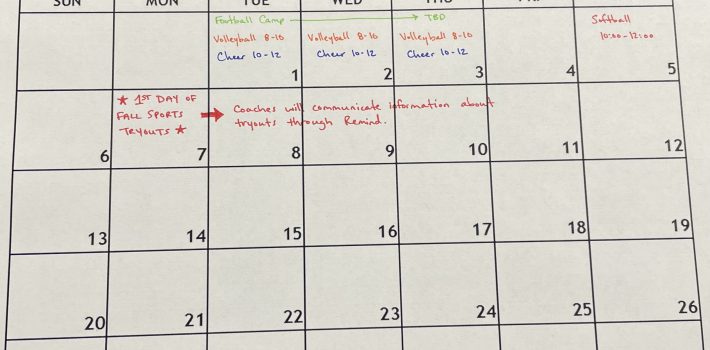 SUN MON TUE WED THU FRI
Football Camp → TBD
Volleyball 8-10 Volleyball 8-10 Volleyball 8-10
Cheer 10-12 Cheer 10-12 Cheer 10-12
Softball
10:00-12:00
1 2 3 4 5
★ 1ST DAY OF
FALL SPORTS
TRYOUTS ★
→ Coaches will communicate information about
tryouts through Remind.
6 7 8 9 10 11 12
13 14 15 16 17 18 19
20 21 22 23 24 25 26